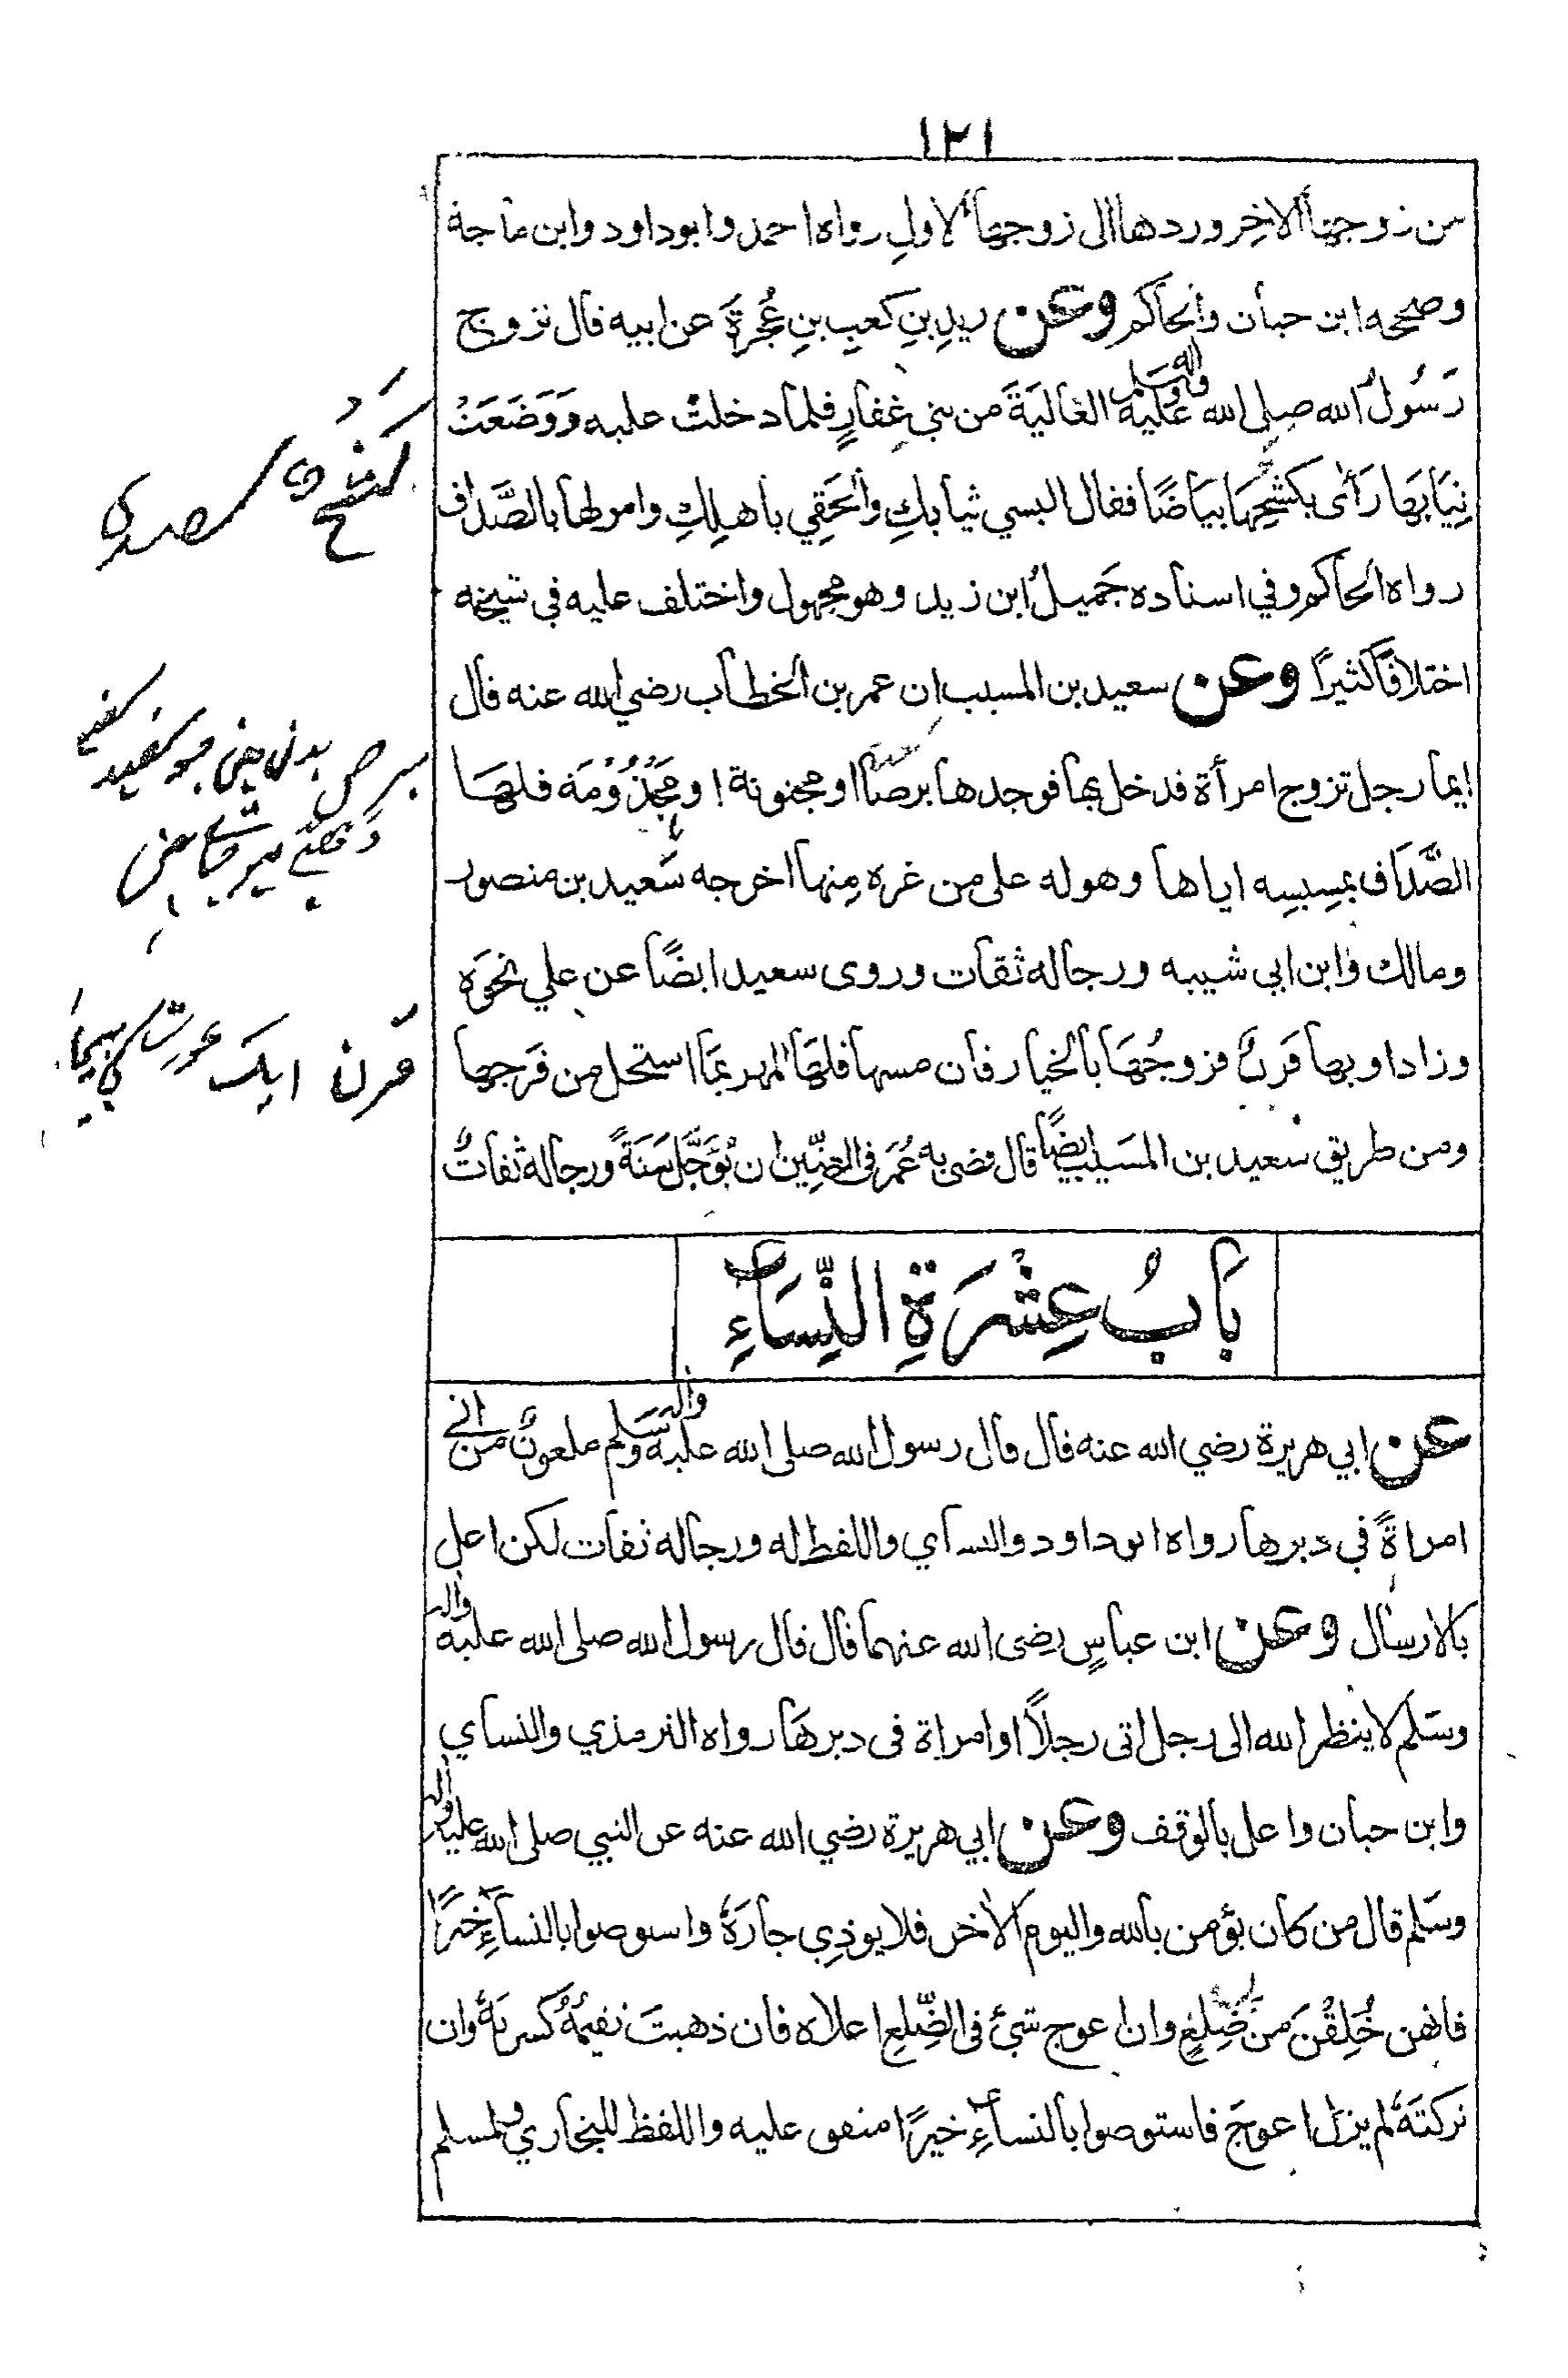 ١٢١
من زوجها الاخِر وردها الى زوجها الاولِ رواه احمد وابو داود وابن ماجة
وصححه ابن حبان والحاكم وعن زيدِ بنِ كعبِ بنِ عُجرةَ عن ابيه قال تزوج
رَسُولُ الله صلى الله عليه واله وسلم العَالِيَةَ من بني غِفارٍ فلما دخلتْ عليه وَوَضَعَتْ
ثِيَابَهَا رَأَى بكَشْحِهَا بيَاضًا فقال البسي ثيابكِ والحَقِي باهلِكِ وامر لها بالصَّداق
رواه الحاكم وفي اسناده جَميلُ ابن زيد وهو مجهول واختلف عليه في شيخه
اختلافًا كثيرًا وعن سعيد بن المسيب ان عمر بن الخطاب رضي الله عنه قال
ايما رجل تزوج امرأة فدخل بها فوجدها برصاء او مجنونة او مَجْذُوْمَة فلهَا
الصَّدَاق بمسِيسِه اياها وهو له على من غره مِنها اخرجه سَعيد بن منصور
ومالك وابن ابي شيبه ورجاله ثقات وروى سعيد ايضًا عن علي نحوَه
وزاد او بها قَرنٌ فزوجُهَا بالخيار فان مسها فلهَا المهر بمَا استحل من فَرجها
ومن طريق سَعيد بن المسَيب ايضًا قال قضى به عُمَر في العِنِّين ان يُؤَجَّل سَنَةً ورجاله ثقاتٌ
كشح
برص بدن
قرن ایک عورت
بَابُ عِشْرَةِ النِّسَاءِ
عن ابي هريرة رضي الله عنه قال قال رسول الله صلى الله عليه واله وسلم ملعونٌ من اتى
امراةً في دبرها رواه ابو داود والنسآي واللفظ له ورجاله ثقات لكن اعل
بالارسال وعن ابن عباسٍ رضى الله عنهما قال قال رسول الله صلى الله عليه واله
وسَلم لا ينظر الله الى رجل اتى رجلاً او امراة فى دبرهَا رواه الترمذي والنسآي
وابن حبان واعل بالوقف وعن ابي هريرة رضي الله عنه عن النبي صلى الله عليه واله
وسَلم قال من كان يؤمن بالله واليوم الآخر فلا يوذِي جارَهُ واستوصوا بالنسآءِ خيرًا
فانهن خُلِقْنَ من ضِلَعٍ وان اعوج شئ فى الضِّلعِ اعلاه فان ذهبتَ تقيمُهُ كسرتَهُ وان
تركتَهُ لم يزل اعوجَ فاستوصوا بالنسآءِ خيرًا متفق عليه واللفظ للبخاري ولمسلم